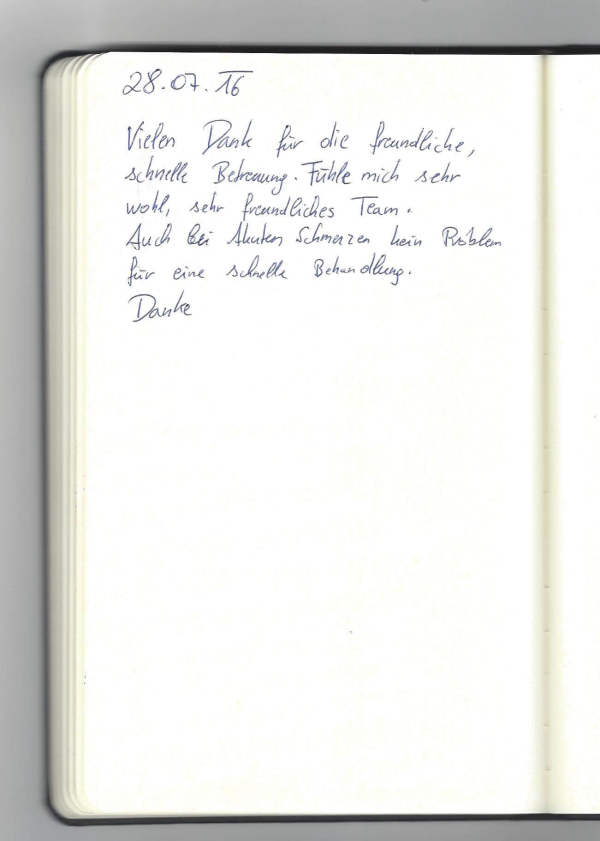 28.07.16
Vielen Dank für die freundliche,
schnelle Betreuung. Fühle mich sehr
wohl, sehr freundliches Team.
Auch bei Akuten Schmerzen kein Problem
für eine schnelle Behandlung.
Danke